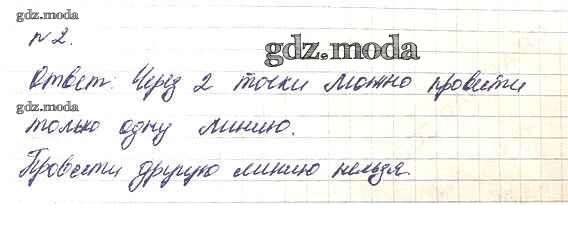 №2.
gdz.moda
Ответ: Через 2 точки можно провести
gdz.moda
только одну линию.
Провести другую линию нельзя.